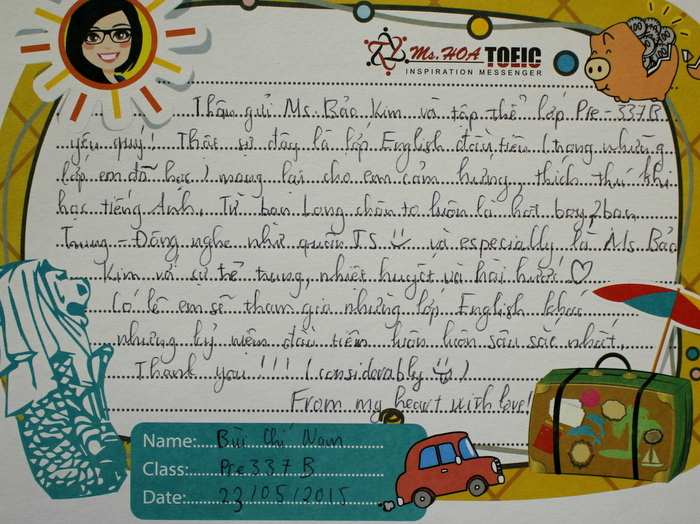 Ms. HOA TOEIC
INSPIRATION MESSENGER
Thân gửi Ms. Bảo Kim và tập thể lớp Pre-337B
yêu quý! Thật sự đây là lớp English đầu tiên (trong những
lớp em đã học) mang lại cho em cảm hứng, thích thú khi
học tiếng Anh. Từ bạn Long chân to luôn là hot boy, 2 bạn
Trung - Đăng nghe như quán T.S và especially là Ms. Bảo
Kim với sự trẻ trung, nhiệt huyết và hài hước ♡
Có lẽ em sẽ tham gia những lớp English khác
những kỷ niệm đầu tiên luôn luôn sâu sắc nhất.
Thank you!!! (considerably)
From my heart with love!
Name: Bùi Chí Nam
Class: Pre337B
Date: 23/05/2015